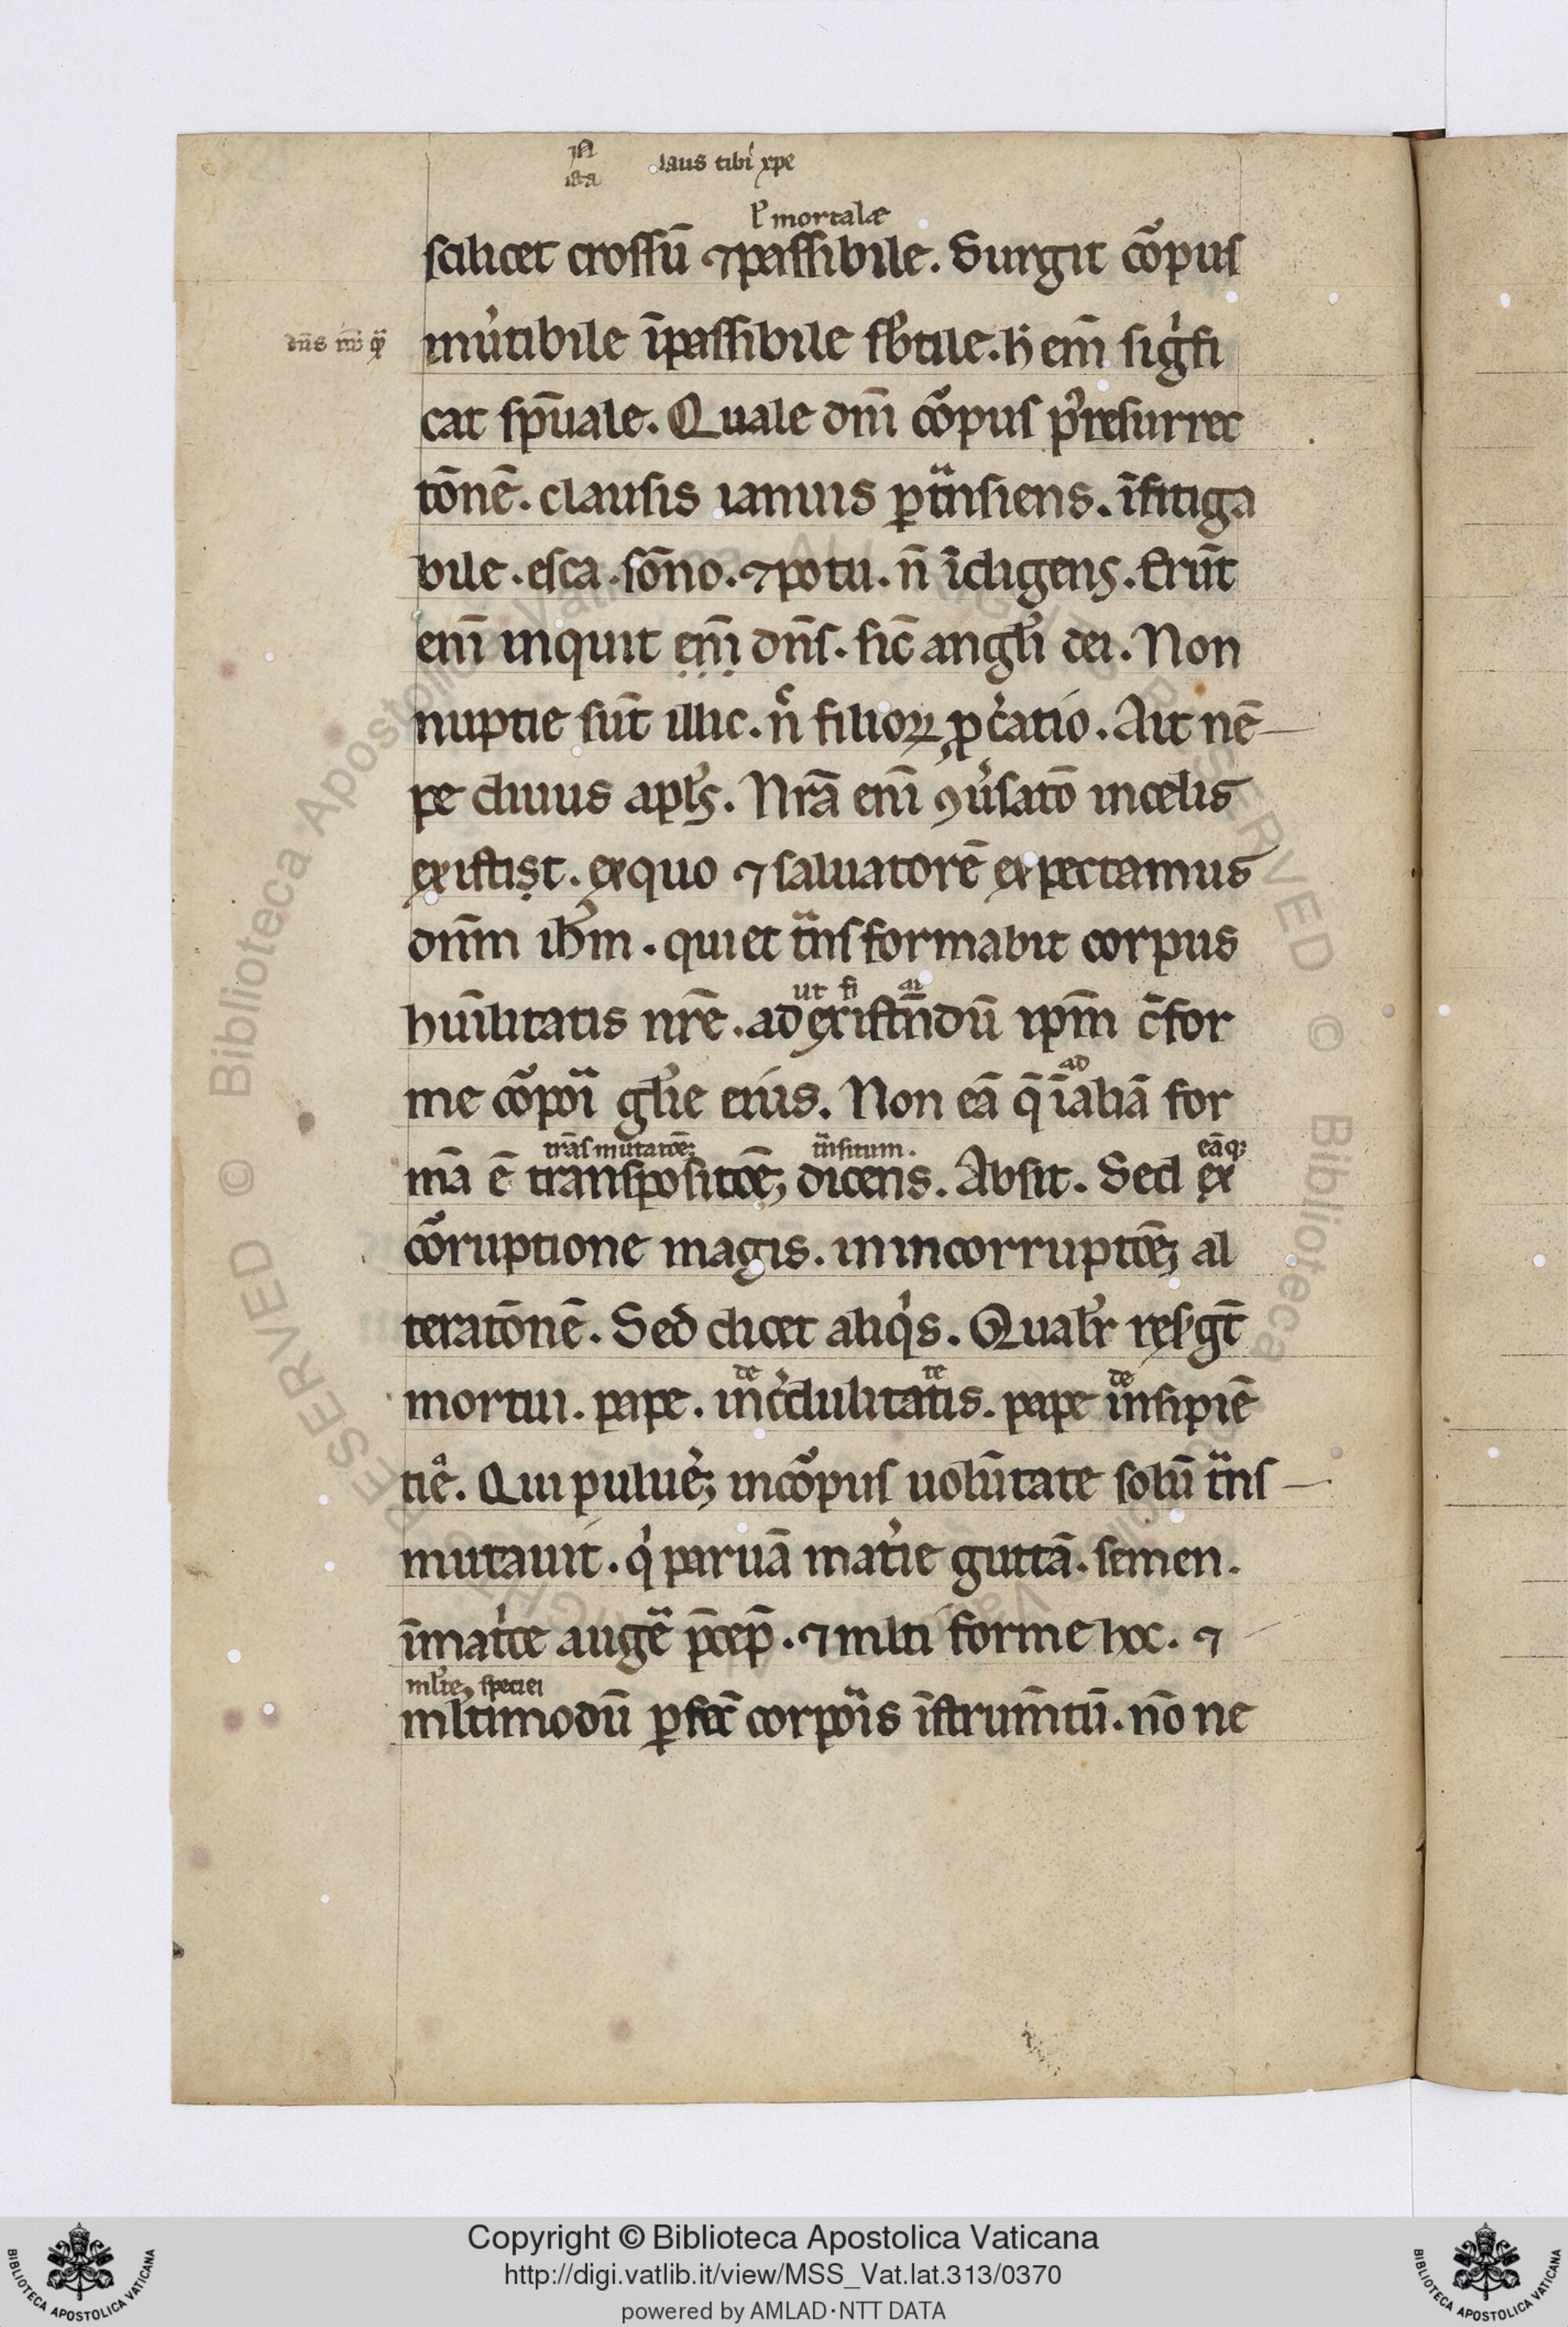 laus tibi xp̄e
ł mortale
scilicet crossū ⁊ passibile. Surgit cōpus
mutibile īpassibile sb̄tile. h̄ em̄ sigͥfi
cat sp̄uale. Quale dn̄i cōpus p᷒ resurrec
tōnē. clausis ianuis ꝑtͣnsiens. īfatiga
bile. esca. sōno. ⁊ potu. n̄ īdigens. Erūt
em̄ inquit em̄ dn̄s. sic̄ angl̄i dei. Non
nuptie sūt illic. n̄ filioꝝ ꝓcͥatio. Ait nē
pe diuus apl̄s. Nrā em̄ ꝯu͛satō in celis
existist. ex quo ⁊ saluatorē expectamus
dn̄m ih̄m. qui et tͣnsformabit corpus
ut fi at
hūilitatis nrē. ad existn̄dū ip̄m c̄for
ad
me cōpoͥi gl̄ie eius. Non eā q̄ ī aliā for
trās mutatōeꝫ tͣnsitum. eā qͥ
mā ē transpositōeꝫ dicens. Absit. Sed ex
cōruptione magis. in incorruptōeꝫ al
teratōnē. Sed dicet aliqͥs. Qualr̄ resͬgt̄
de te de
mortui. pape. incͥdulitatis. pape insipiē
tie. Qui pulue͛ꝫ in cōpus uolūtate solū tͣns
mutauit. qͥ paruā mat͛ie guttā. semen.
ī matͥce augͤe p̄cep̄. ⁊ ml̄ti forme hoc. ⁊
ml̄te speciei
ml̄timodū ꝑfec̄ corpoͥis īstrum̄tū. nō ne
Copyright © Biblioteca Apostolica Vaticana
http://digi.vatlib.it/view/MSS_Vat.lat.313/0370
powered by AMLAD·NTT DATA
BIBLIOTECA APOSTOLICA VATICANA
BIBLIOTECA APOSTOLICA VATICANA